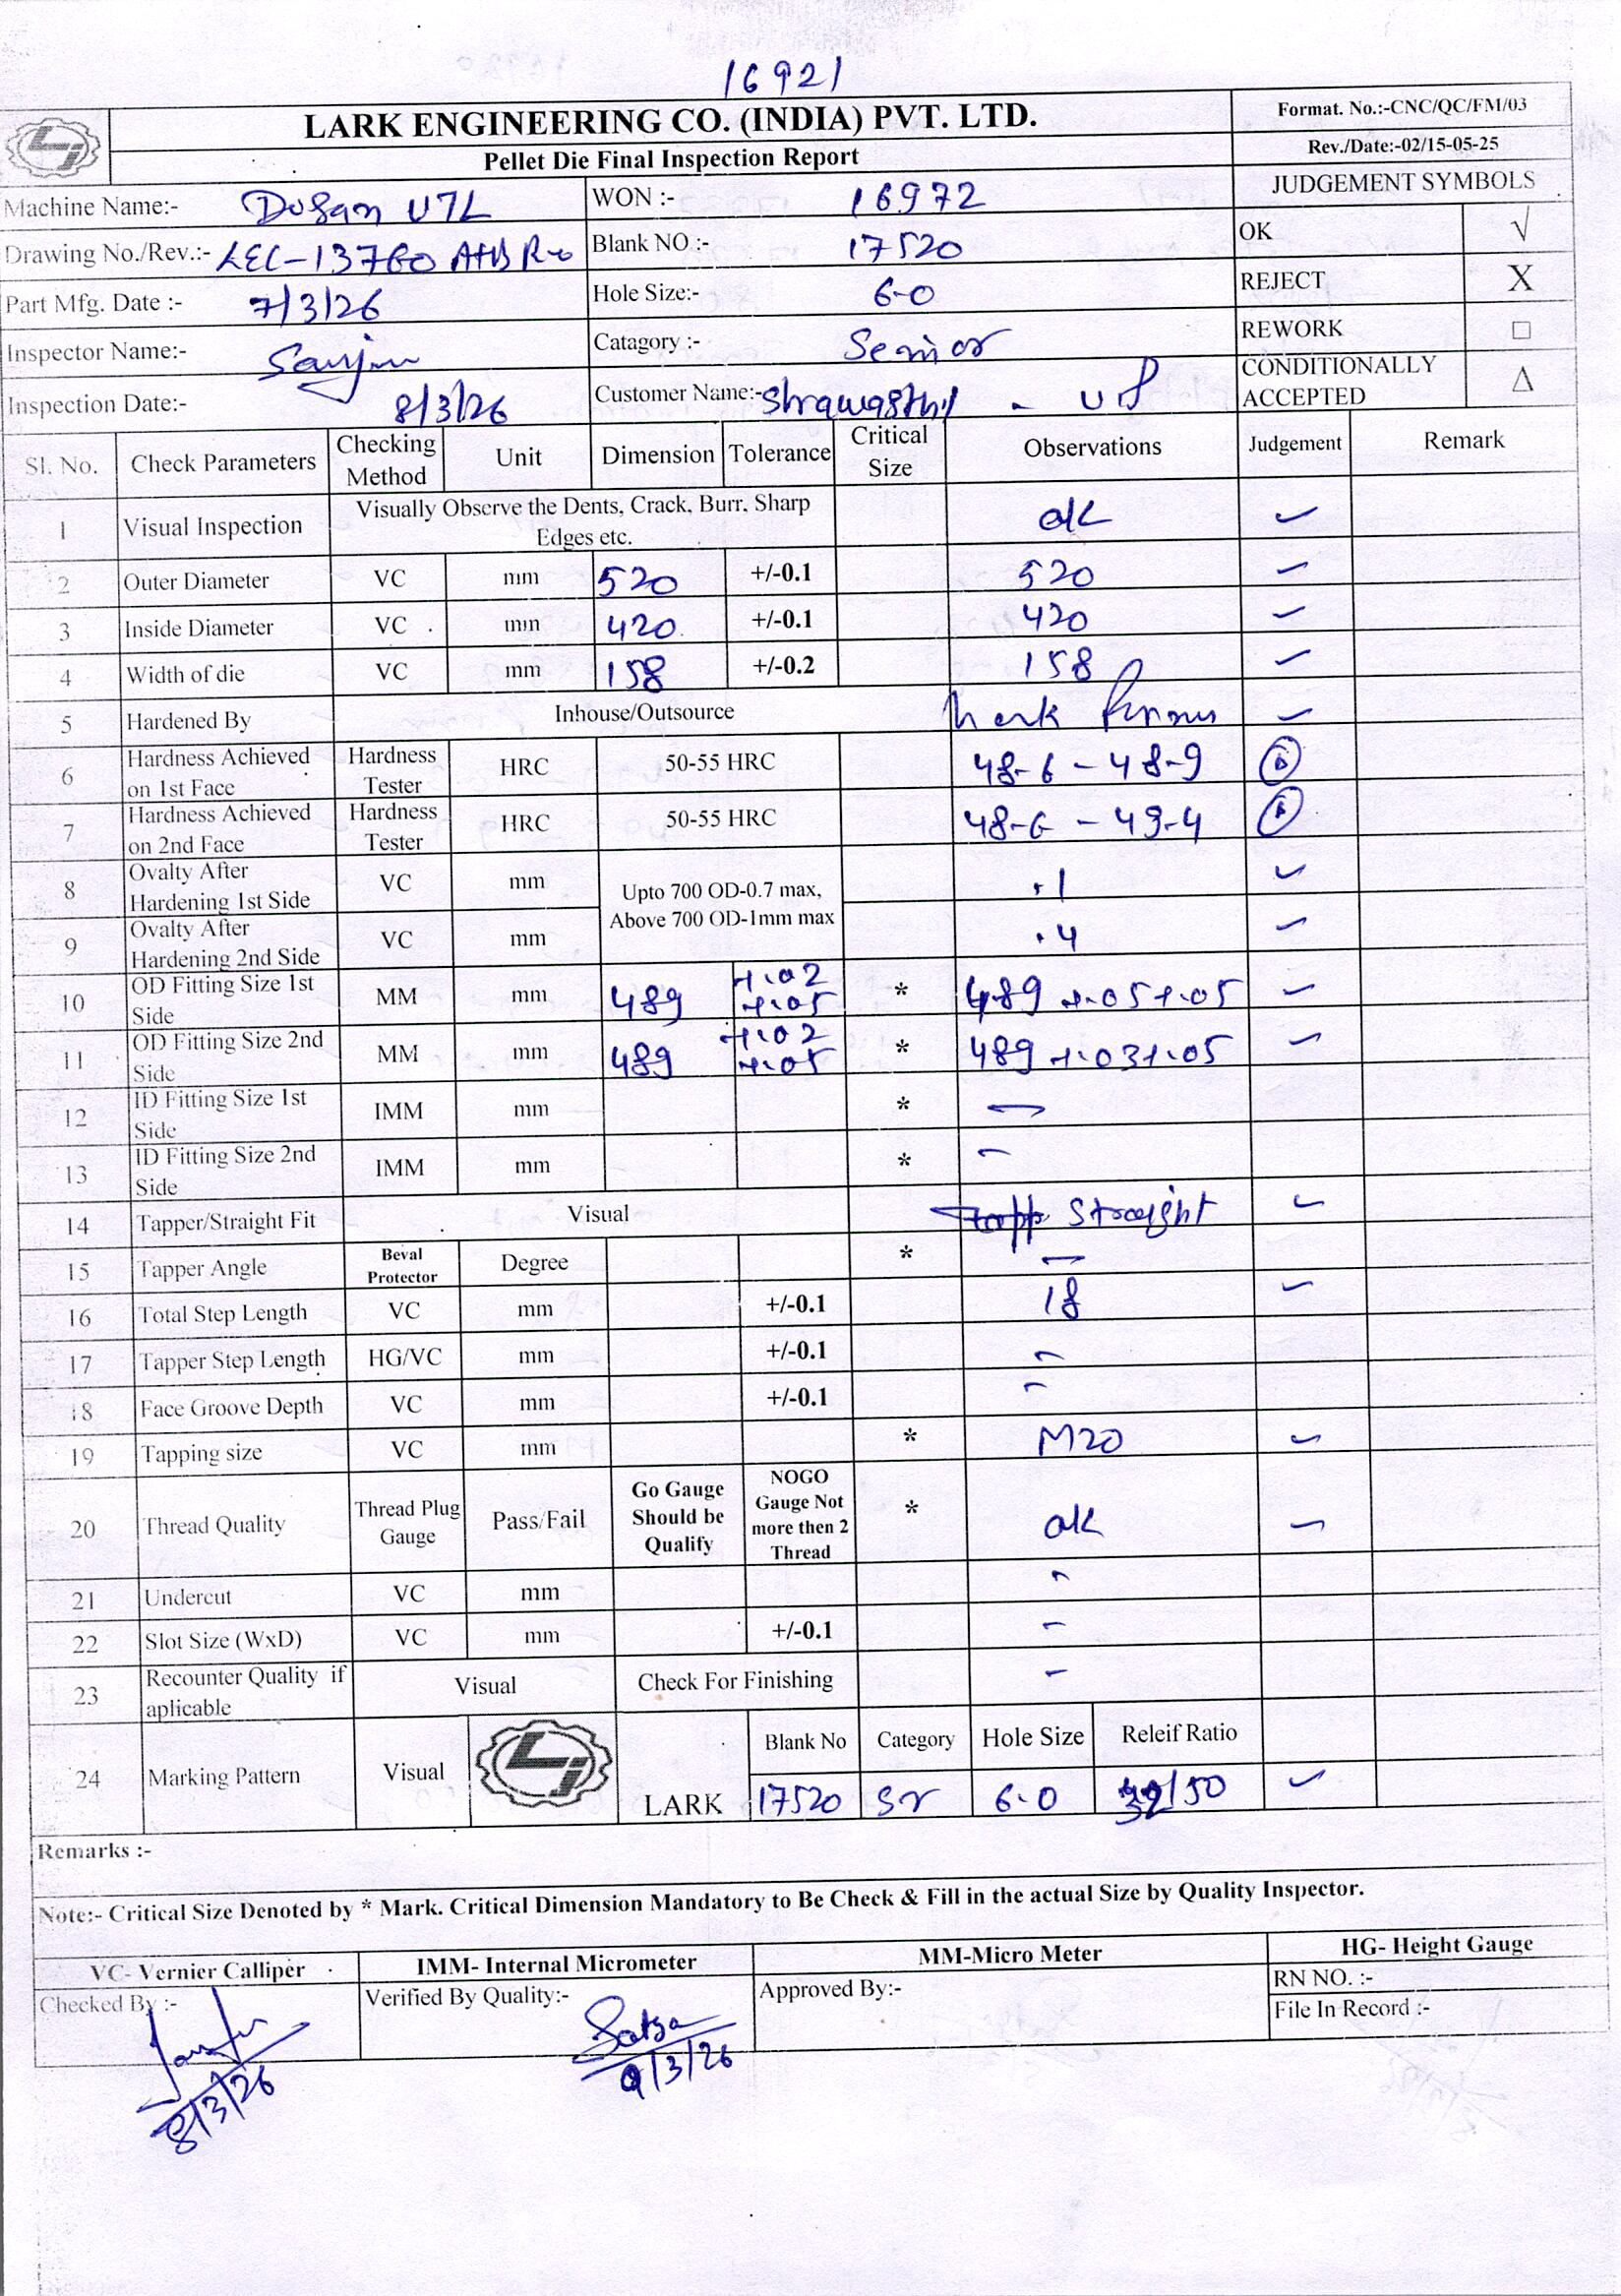 16921
LARK ENGINEERING CO. (INDIA) PVT. LTD.
Format. No.:-CNC/QC/FM/03
Pellet Die Final Inspection Report
Rev./Date:-02/15-05-25
Machine Name:- WON :- 16972 JUDGEMENT SYMBOLS
Drawing No./Rev.:- LEC-13760 Blank NO :- 17520 OK √
Part Mfg. Date :- 7/3/26 Hole Size:- 6-0 REJECT X
Inspector Name:- Sanju Catagory :- Senior REWORK □
Inspection Date:- 8/3/26 Customer Name:- - UP CONDITIONALLY ACCEPTED Δ
Sl. No. Check Parameters Checking Method Unit Dimension Tolerance Critical Size Observations Judgement Remark
1 Visual Inspection Visually Observe the Dents, Crack, Burr, Sharp Edges etc. ok
2 Outer Diameter VC mm 520 +/-0.1 520
3 Inside Diameter VC mm 420 +/-0.1 420
4 Width of die VC mm 158 +/-0.2 158
5 Hardened By Inhouse/Outsource
6 Hardness Achieved on 1st Face Hardness Tester HRC 50-55 HRC 48-6 - 48-9
7 Hardness Achieved on 2nd Face Hardness Tester HRC 50-55 HRC 48-6 - 49-4
8 Ovalty After Hardening 1st Side VC mm Upto 700 OD-0.7 max, Above 700 OD-1mm max .1
9 Ovalty After Hardening 2nd Side VC mm .4
10 OD Fitting Size 1st Side MM mm 489 +.02 +.05 * 489 +.05+.05
11 OD Fitting Size 2nd Side MM mm 489 +.02 +.05 * 489 +.03+.05
12 ID Fitting Size 1st Side IMM mm * —
13 ID Fitting Size 2nd Side IMM mm * -
14 Tapper/Straight Fit Visual Straight
15 Tapper Angle Beval Protector Degree * —
16 Total Step Length VC mm +/-0.1 18
17 Tapper Step Length HG/VC mm +/-0.1 -
18 Face Groove Depth VC mm +/-0.1 -
19 Tapping size VC mm * M20
20 Thread Quality Thread Plug Gauge Pass/Fail Go Gauge Should be Qualify NOGO Gauge Not more then 2 Thread * ok
21 Undercut VC mm -
22 Slot Size (WxD) VC mm +/-0.1 -
23 Recounter Quality if aplicable Visual Check For Finishing -
24 Marking Pattern Visual LARK Blank No Category Hole Size Releif Ratio
17520 Sr 6-0 /50
Remarks :-
Note:- Critical Size Denoted by * Mark. Critical Dimension Mandatory to Be Check & Fill in the actual Size by Quality Inspector.
VC- Vernier Calliper IMM- Internal Micrometer MM-Micro Meter HG- Height Gauge
Checked By :- Verified By Quality:- Approved By:- RN NO. :-
File In Record :-
8/3/26 9/3/26